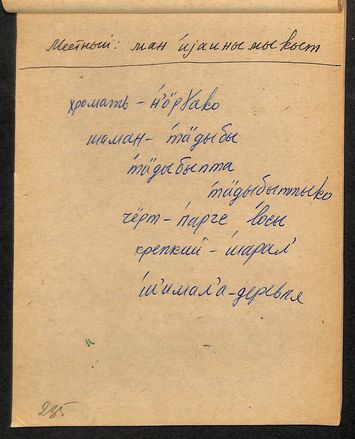 Местный: ман 'иjаинымыкыт
хромать – н'öрɣако
шаман – 'тäдыбы
'тäдыбыпта
'тäдыбытпыко
чёрт – 'парге 'lосы
крепкий – 'шарал'
'ш'имал'а – деревья
235.